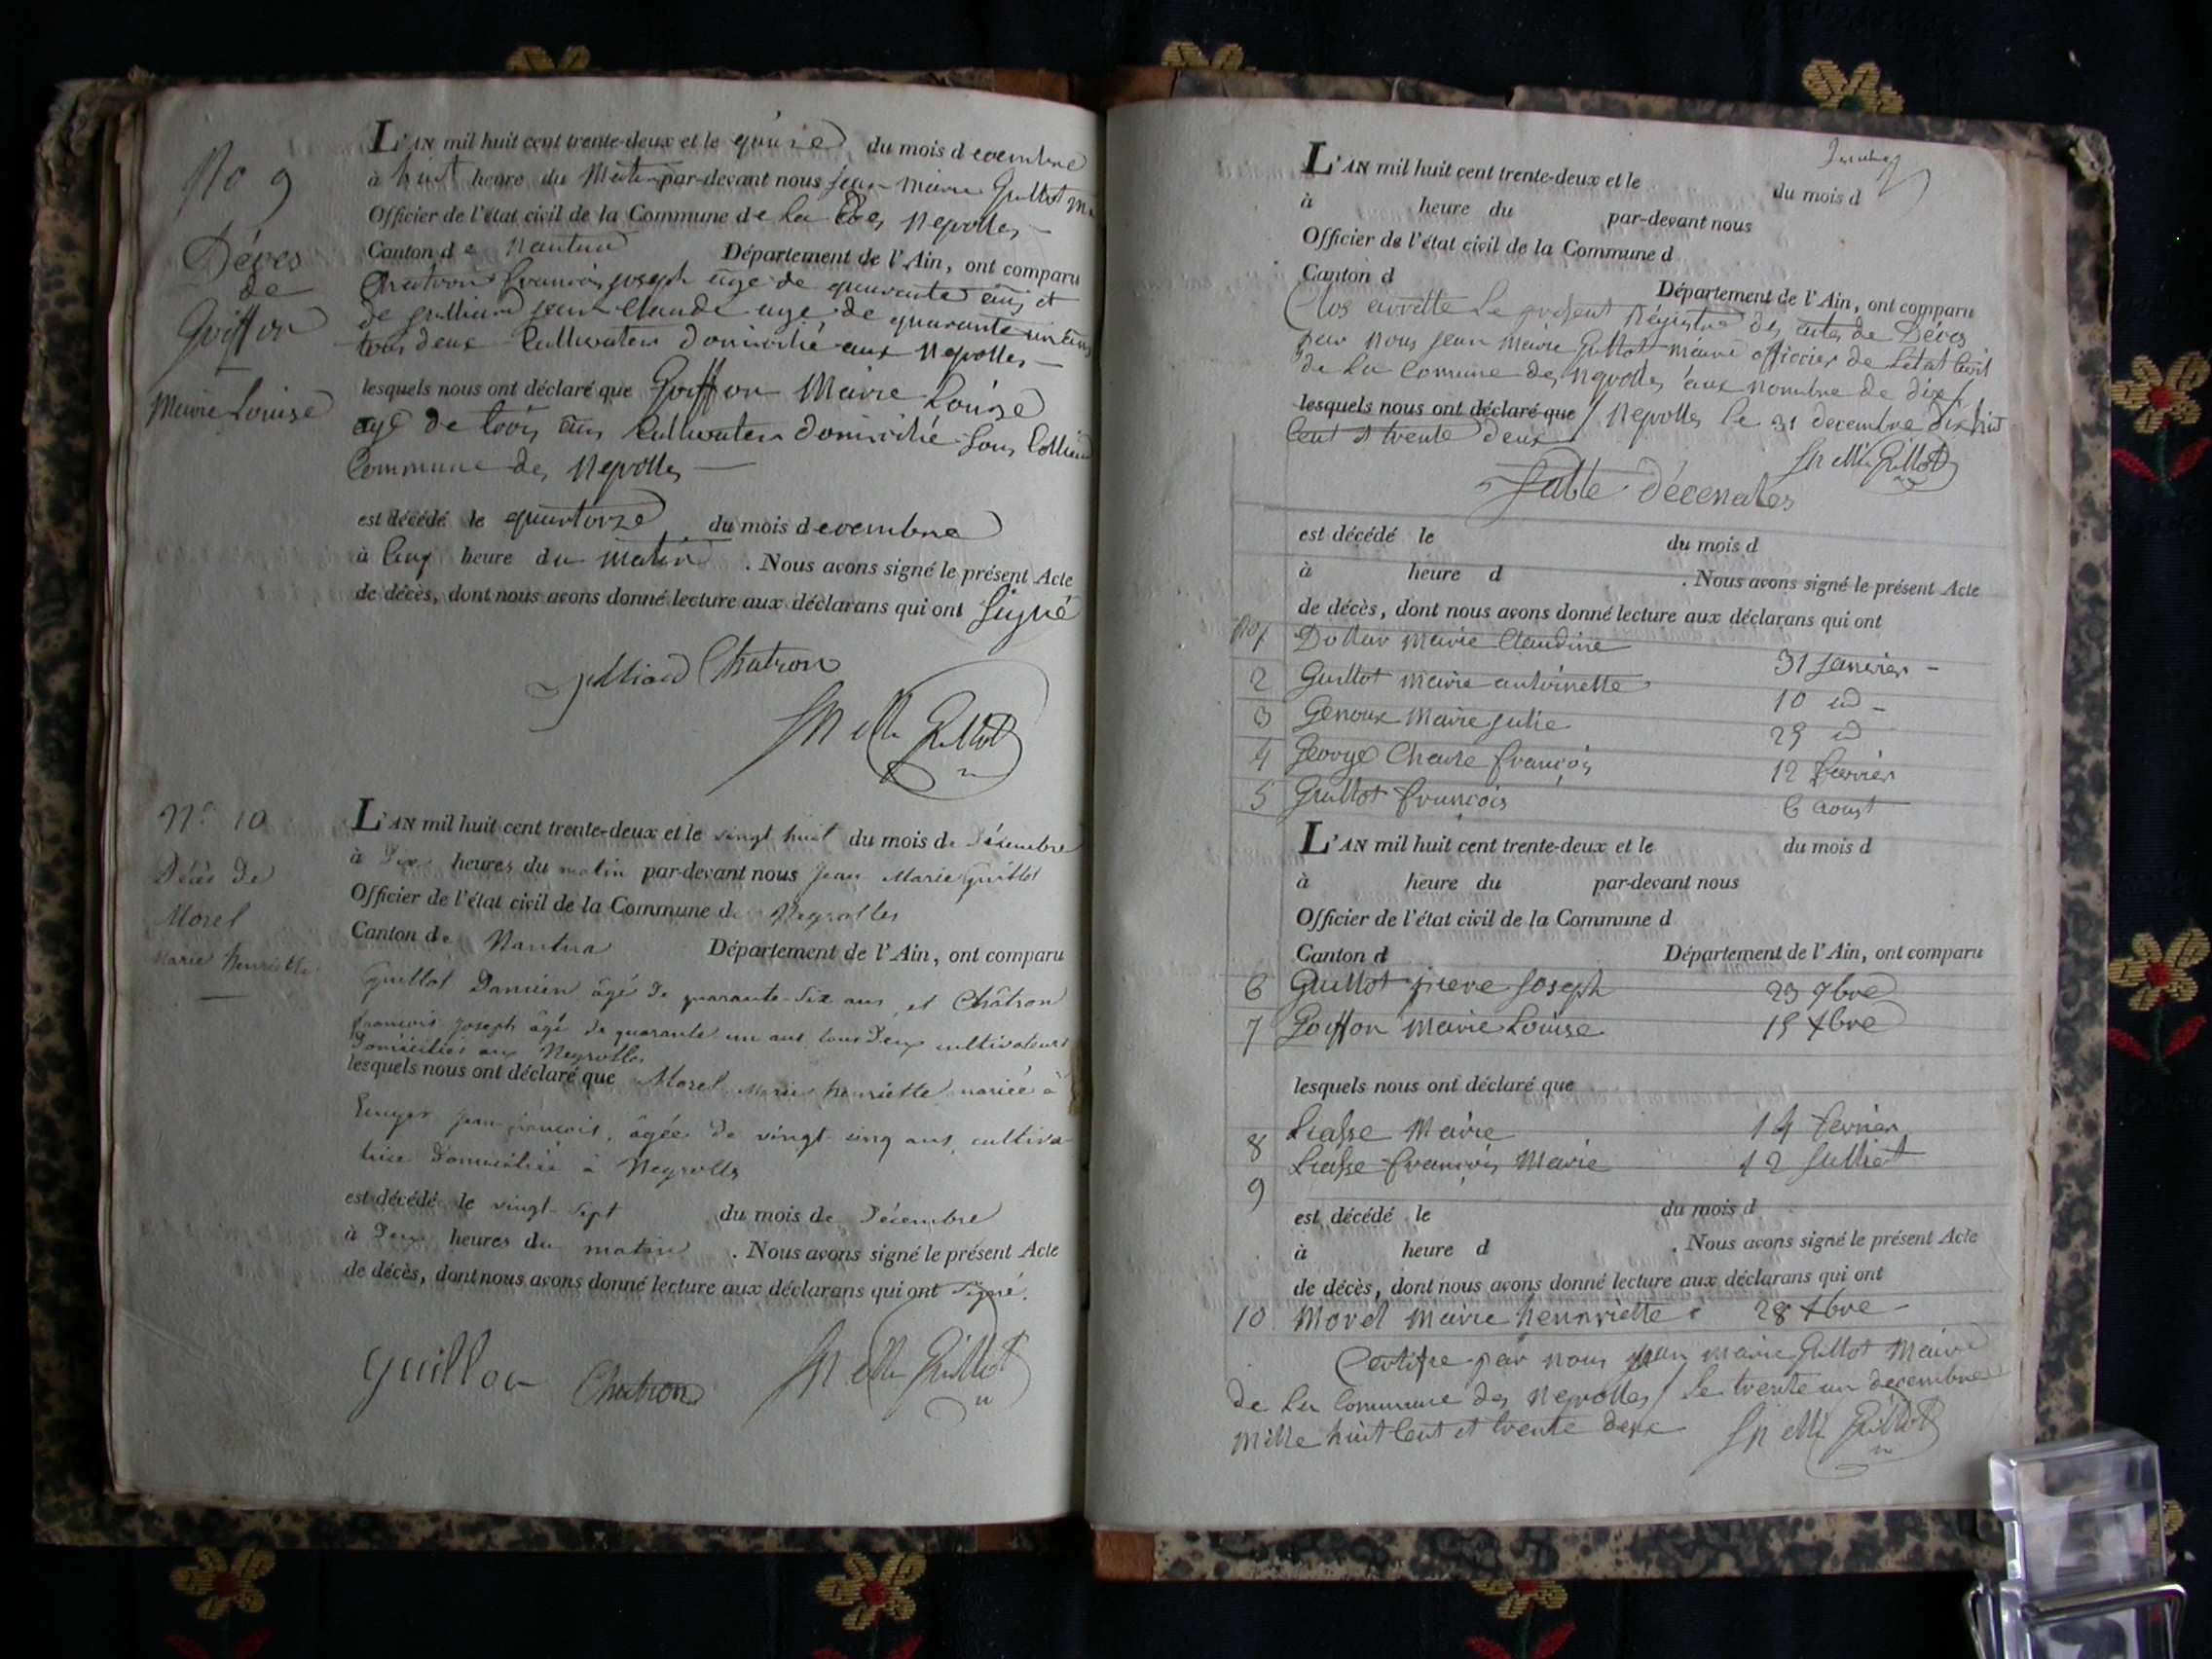 No 9
Déces
de
Goiffon
Marie Louise
L'AN mil huit cent trente-deux et le quinze du mois d ecembre
à huit heure du Matin par-devant nous jean marie Guillot
Officier de l'état civil de la Commune de La des Neyrolles
Canton de Nantua Département de l'Ain, ont comparu
Chatron françois joseph age de quarante ans et
de julliard jean Claude age de quarante un ans
tous deux Cultivateur Domicilié aux Neyrolles
lesquels nous ont déclaré que Goiffon Marie Louise
agé de trois ans Cultivateur domicilié Sous
Commune des Neyrolles
est décédé le quatorze du mois d ecembre
à Cinq heure du matin . Nous avons signé le présent Acte
de décès, dont nous avons donné lecture aux déclarans qui ont Signé
julliard Chatron
Guillot
N° 10
Décès de
Morel
Marie henriette
L'AN mil huit cent trente-deux et le vingt huit du mois de Décembre
à Dix heures du matin par-devant nous Jean Marie Guillot
Officier de l'état civil de la Commune de Neyrolles
Canton de Nantua Département de l'Ain, ont comparu
Guillot Damien âgé de quarante-six ans, et Châtron
françois joseph âgé de quarante un ans tous Deux cultivateurs
Domiciliés aux Neyrolles
lesquels nous ont déclaré que Morel Marie henriette mariée à
jean françois, âgée de vingt cinq ans, cultiva-
trice Domiciliée à Neyrolles
est décédé le vingt-sept du mois de Décembre
à Deux heures du matin . Nous avons signé le présent Acte
de décès, dont nous avons donné lecture aux déclarans qui ont signé.
Guillot Chatron Guillot
L'AN mil huit cent trente-deux et le du mois d
à heure du par-devant nous
Officier de l'état civil de la Commune d
Canton d Département de l'Ain, ont comparu
Clos arrette Le present Régistre des actes de Déces
par nous jean marie Guillot maire officier de Letat Civil
de La Comune des Neyrolles aux nombre de dix
lesquels nous ont déclaré que Neyrolles le 31 decembre dix huit
Cent et trente deux
Guillot
Table Décenales
est décédé le du mois d
à heure d . Nous avons signé le présent Acte
de décès, dont nous avons donné lecture aux déclarans qui ont
No 1 marie Claudine 31 janvier
2 Guillot marie antoinette 10 id
3 Genoux Marie julie 29 id
4 George Charle françois 12 fevrier
5 Guillot francois 6 aoust
L'AN mil huit cent trente-deux et le du mois d
à heure du par-devant nous
Officier de l'état civil de la Commune d
Canton d Département de l'Ain, ont comparu
6 Guillot piere Joseph 23 9bre
7 Goiffon Marie Louise 15 Xbre
lesquels nous ont déclaré que
8 Liasse Marie 14 fevrier
9 Liasse françois Marie 12 Julliet
est décédé le du mois d
à heure d . Nous avons signé le présent Acte
de décès, dont nous avons donné lecture aux déclarans qui ont
10 Morel Marie hennriette 28 Xbre
Certifie par nous jean marie Guillot Maire
de La Commune des Neyrolles le trente un decembre
Mille huit Cent et trente deux Guillot